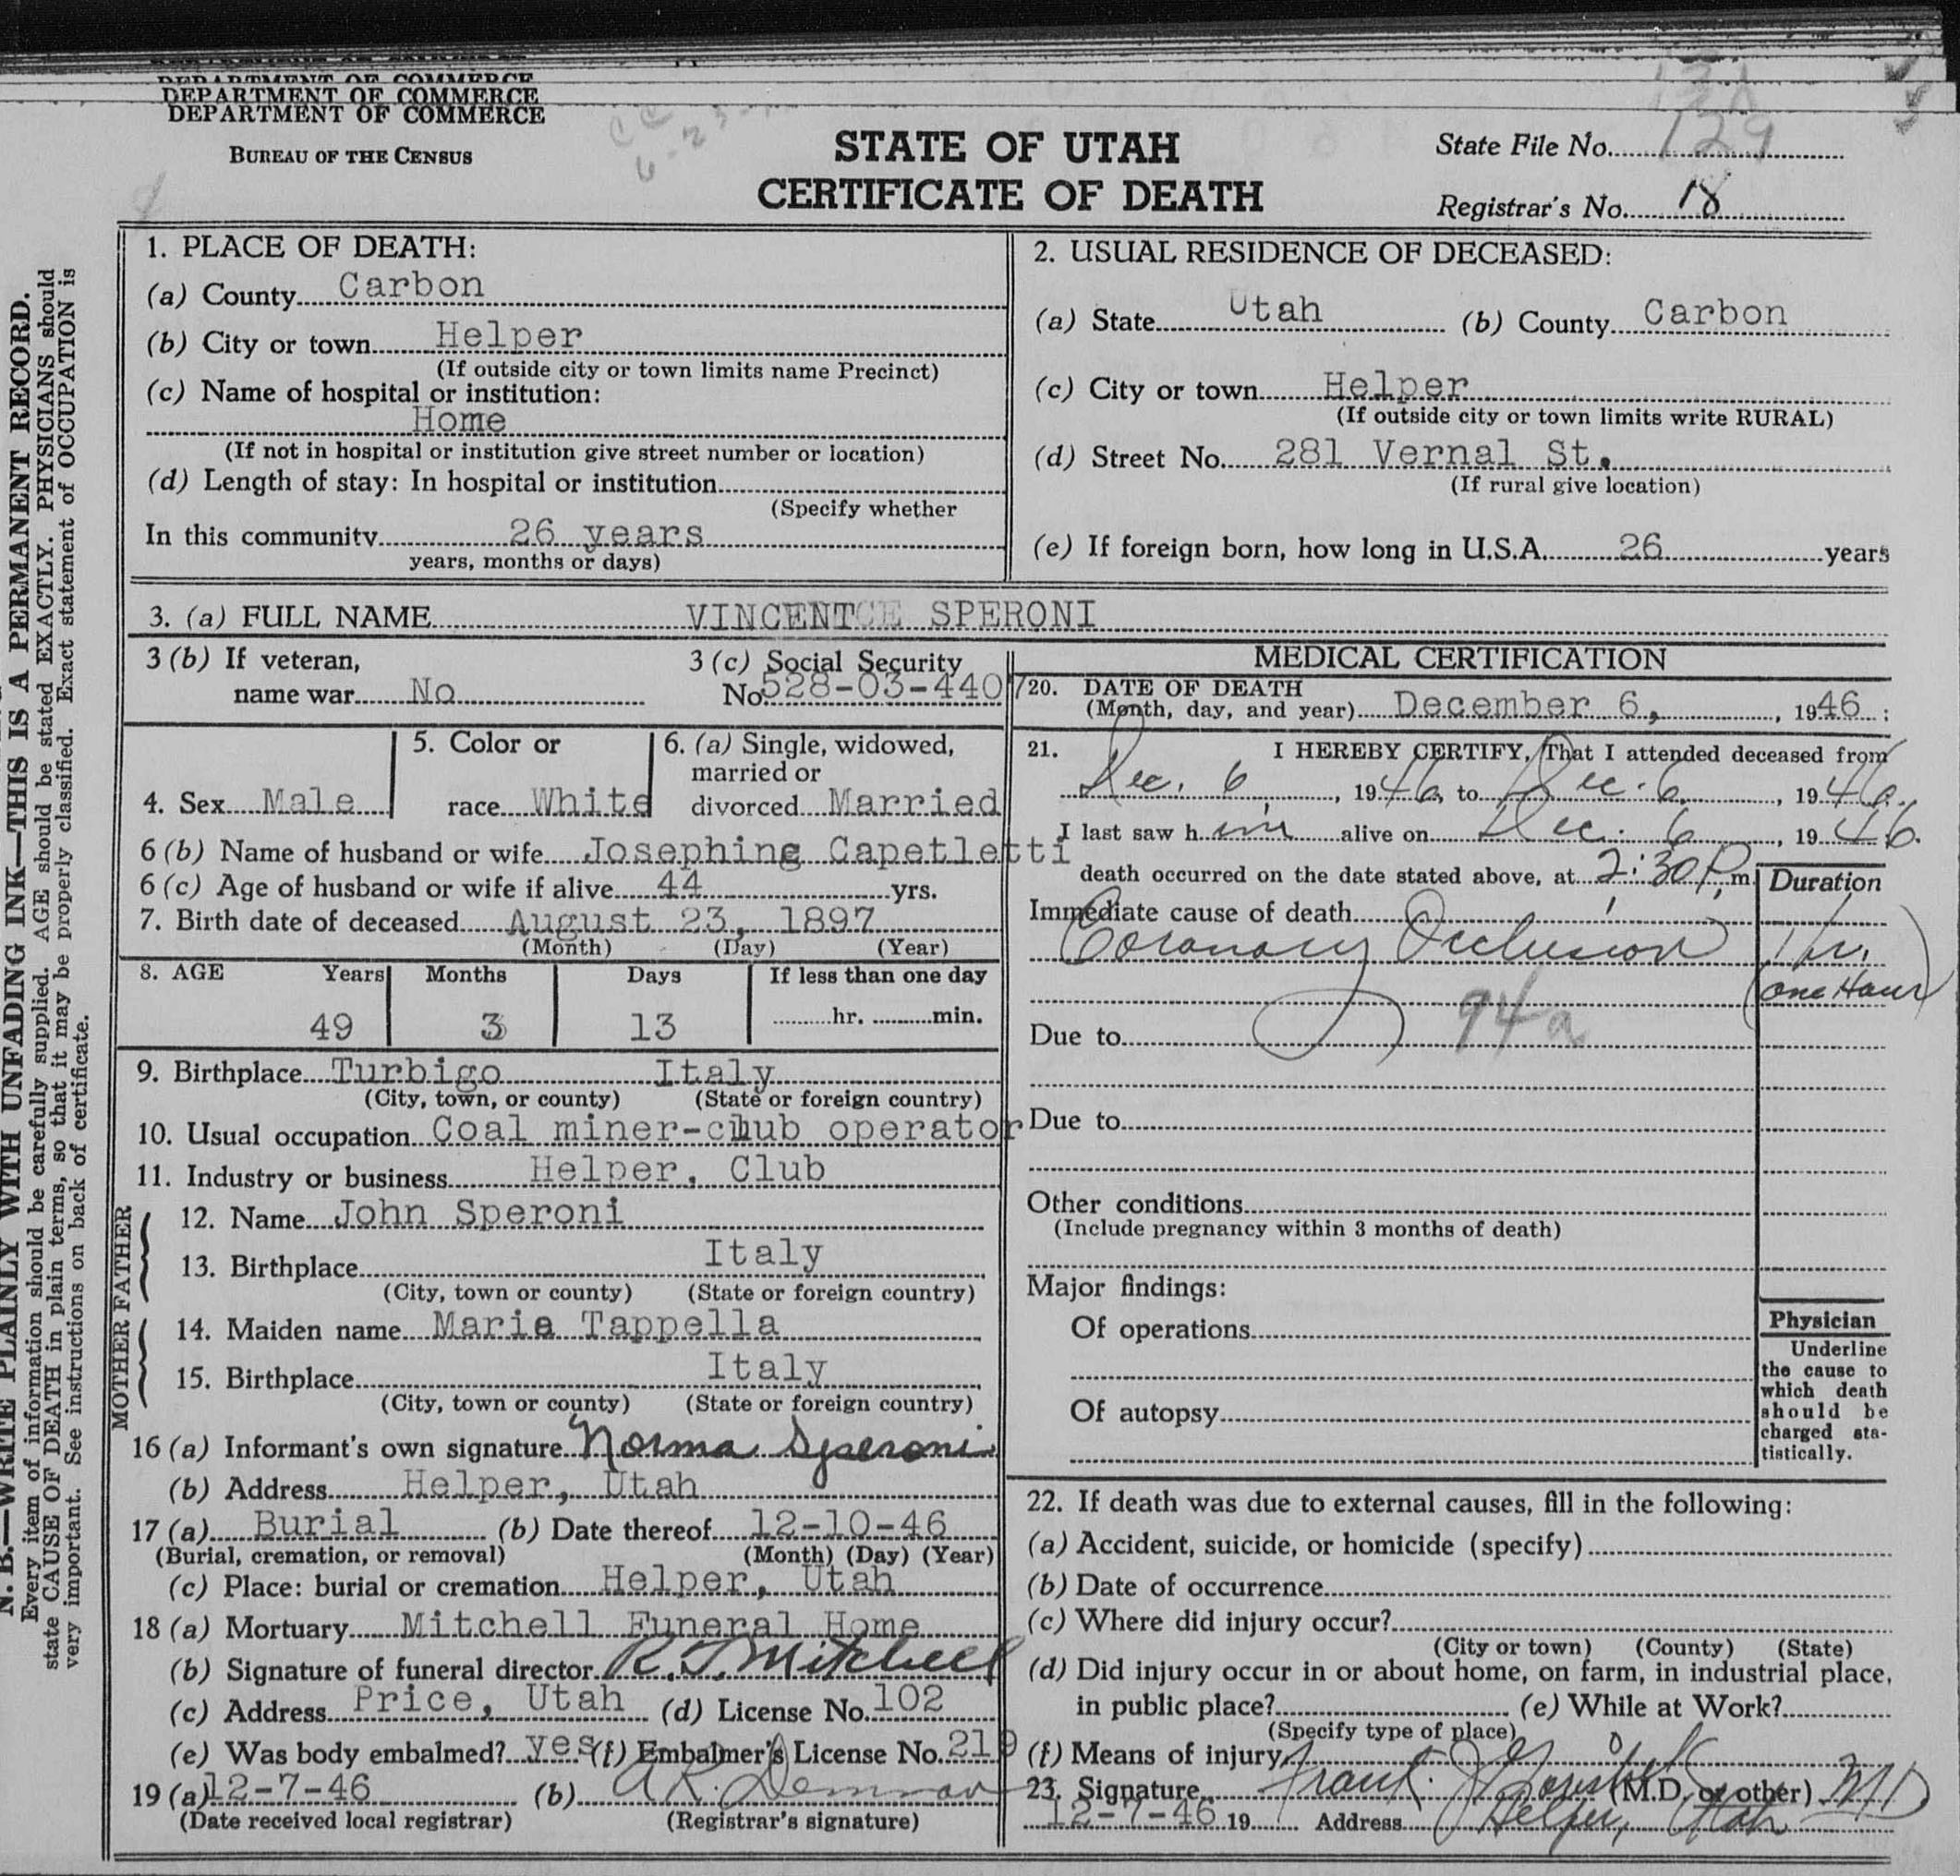 DEPARTMENT OF COMMERCE
DEPARTMENT OF COMMERCE
DEPARTMENT OF COMMERCE
BUREAU OF THE CENSUS
STATE OF UTAH
CERTIFICATE OF DEATH
State File No. 129
Registrar's No. 18
N. B.—WRITE PLAINLY WITH UNFADING INK—THIS IS A PERMANENT RECORD.
Every item of information should be carefully supplied. AGE should be stated EXACTLY. PHYSICIANS should
state CAUSE OF DEATH in plain terms, so that it may be properly classified. Exact statement of OCCUPATION is
very important. See instructions on back of certificate.
1. PLACE OF DEATH:
(a) County Carbon
(b) City or town Helper
(If outside city or town limits name Precinct)
(c) Name of hospital or institution:
Home
(If not in hospital or institution give street number or location)
(d) Length of stay: In hospital or institution
(Specify whether
In this community 26 years
years, months or days)
2. USUAL RESIDENCE OF DECEASED:
(a) State Utah (b) County Carbon
(c) City or town Helper
(If outside city or town limits write RURAL)
(d) Street No. 281 Vernal St.
(If rural give location)
(e) If foreign born, how long in U.S.A. 26 years
3. (a) FULL NAME VINCENT SPERONI
3 (b) If veteran,
name war No
3 (c) Social Security
No. 528-03-4407
4. Sex Male
5. Color or
race White
6. (a) Single, widowed,
married or
divorced Married
6 (b) Name of husband or wife Josephine Capetletti
6 (c) Age of husband or wife if alive 44 yrs.
7. Birth date of deceased August 23, 1897
(Month) (Day) (Year)
8. AGE Years Months Days If less than one day
49 3 13 hr. min.
9. Birthplace Turbigo Italy
(City, town, or county) (State or foreign country)
10. Usual occupation Coal miner-club operator
11. Industry or business Helper, Club
FATHER
12. Name John Speroni
13. Birthplace Italy
(City, town or county) (State or foreign country)
MOTHER
14. Maiden name Maria Tappella
15. Birthplace Italy
(City, town or county) (State or foreign country)
16 (a) Informant's own signature Norma Speroni
(b) Address Helper, Utah
17 (a) Burial (b) Date thereof 12-10-46
(Burial, cremation, or removal) (Month) (Day) (Year)
(c) Place: burial or cremation Helper, Utah
18 (a) Mortuary Mitchell Funeral Home
(b) Signature of funeral director R. J. Mitchell
(c) Address Price, Utah (d) License No. 102
(e) Was body embalmed? yes (f) Embalmer's License No. 219
19 (a) 12-7-46 (b) A R
(Date received local registrar) (Registrar's signature)
MEDICAL CERTIFICATION
20. DATE OF DEATH
(Month, day, and year) December 6, 1946 :
21. I HEREBY CERTIFY, That I attended deceased from
Dec. 6, 1946, to Dec. 6, 1946.
I last saw him alive on Dec. 6, 1946.
death occurred on the date stated above, at 2:30 P. m.
Duration
Immediate cause of death
Coronary Occlusion 1 hr.
(one Hour)
94a
Due to
Due to
Other conditions
(Include pregnancy within 3 months of death)
Major findings:
Of operations
Of autopsy
Physician
Underline
the cause to
which death
should be
charged sta-
tistically.
22. If death was due to external causes, fill in the following:
(a) Accident, suicide, or homicide (specify)
(b) Date of occurrence
(c) Where did injury occur?
(City or town) (County) (State)
(d) Did injury occur in or about home, on farm, in industrial place,
in public place? (e) While at Work?
(Specify type of place)
(f) Means of injury
23. Signature Frank J. (M.D. or other) MD
12-7-46 19 Address Helper, Utah